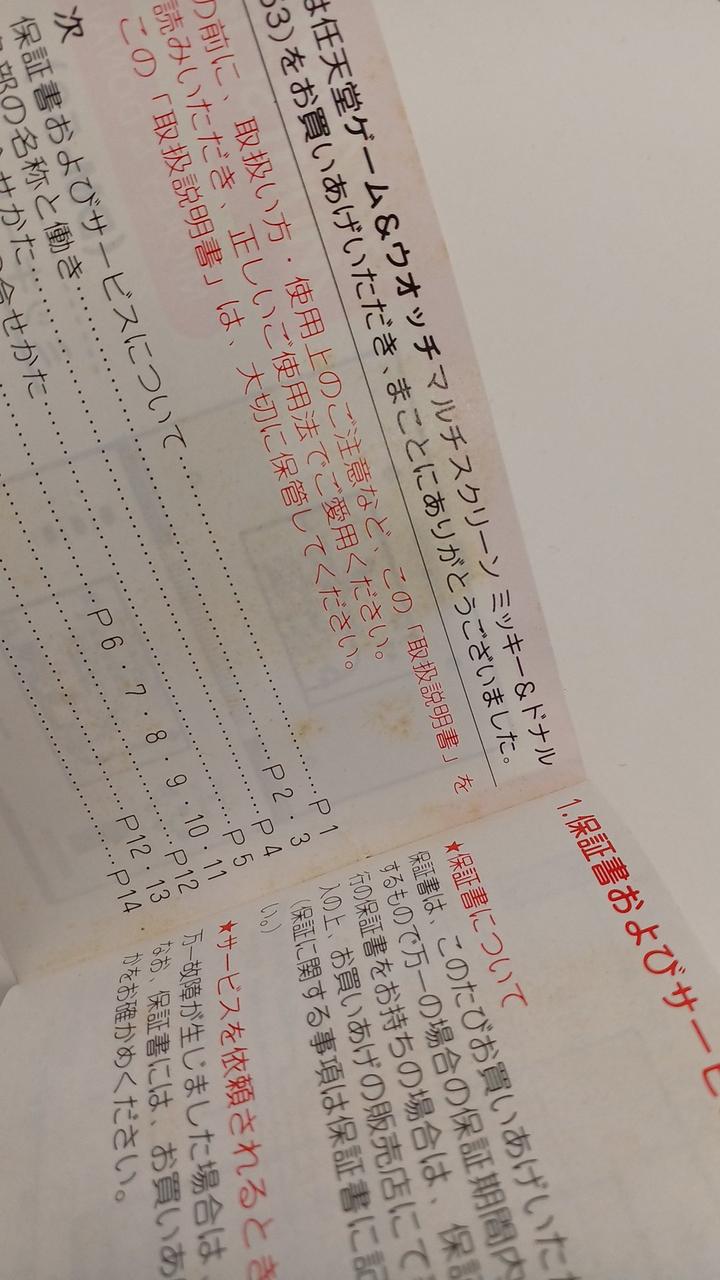 は任天堂ゲーム&ウオッチマルチスクリーン ミッキー&ドナル
53)をお買いあげいただき、まことにありがとうございました。
の前に、取扱い方・使用上のご注意など、この「取扱説明書」を
読みいただき、正しいご使用法でご愛用ください。
この「取扱説明書」は、大切に保管してください。
次
保証書およびサービスについて……P1
部の名称と働き……P2・3
せかた……P4
合せかた……P5
P6・7・8・9・10・11
P12
P12・13
P14
1.保証書およびサービ
★保証書について
保証書は、このたびお買いあげいた
するもので万一の場合の保証期間内
行の保証書をお持ちの場合は、保証
入の上、お買いあげの販売店にて
(保証に関する事項は保証書に記
い。)
★サービスを依頼されるとき
万一故障が生じました場合は、
なお、保証書には、お買いあ
かをお確かめください。